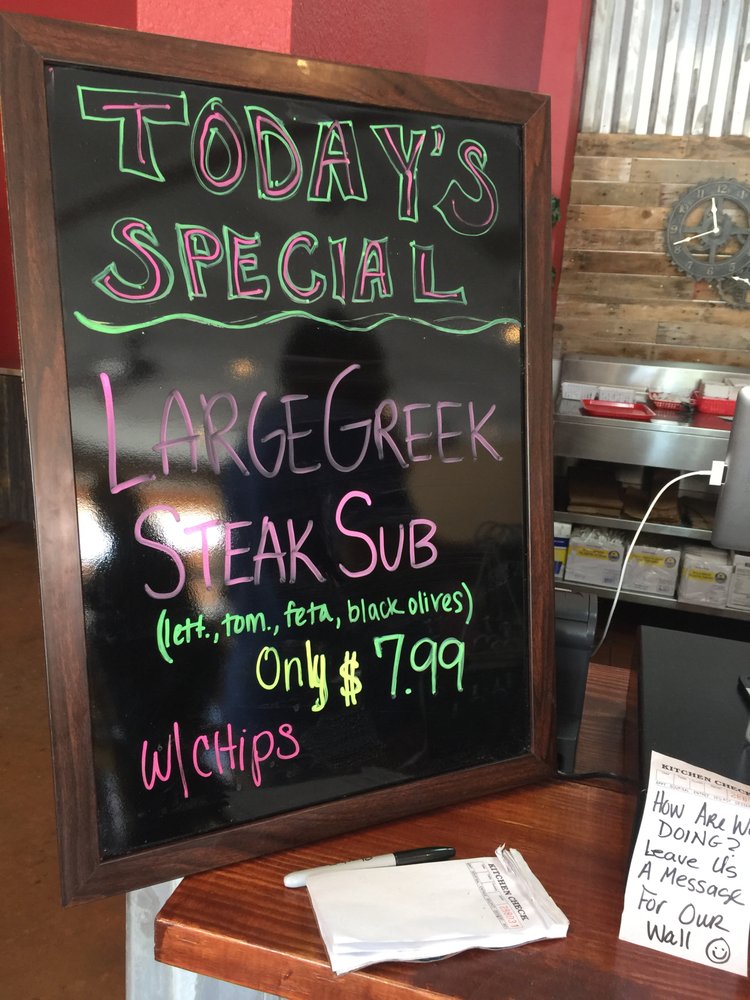 TODAY'S
SPECIAL
LARGE GREEK
STEAK SUB
(lett., tom., feta, black olives)
Only $ 7.99
w/ CHIPS
KITCHEN CHECK
KITCHEN CHECK
HOW ARE W
DOING?
Leave Us
A MESSAGE
FOR OUR
Wall ☺